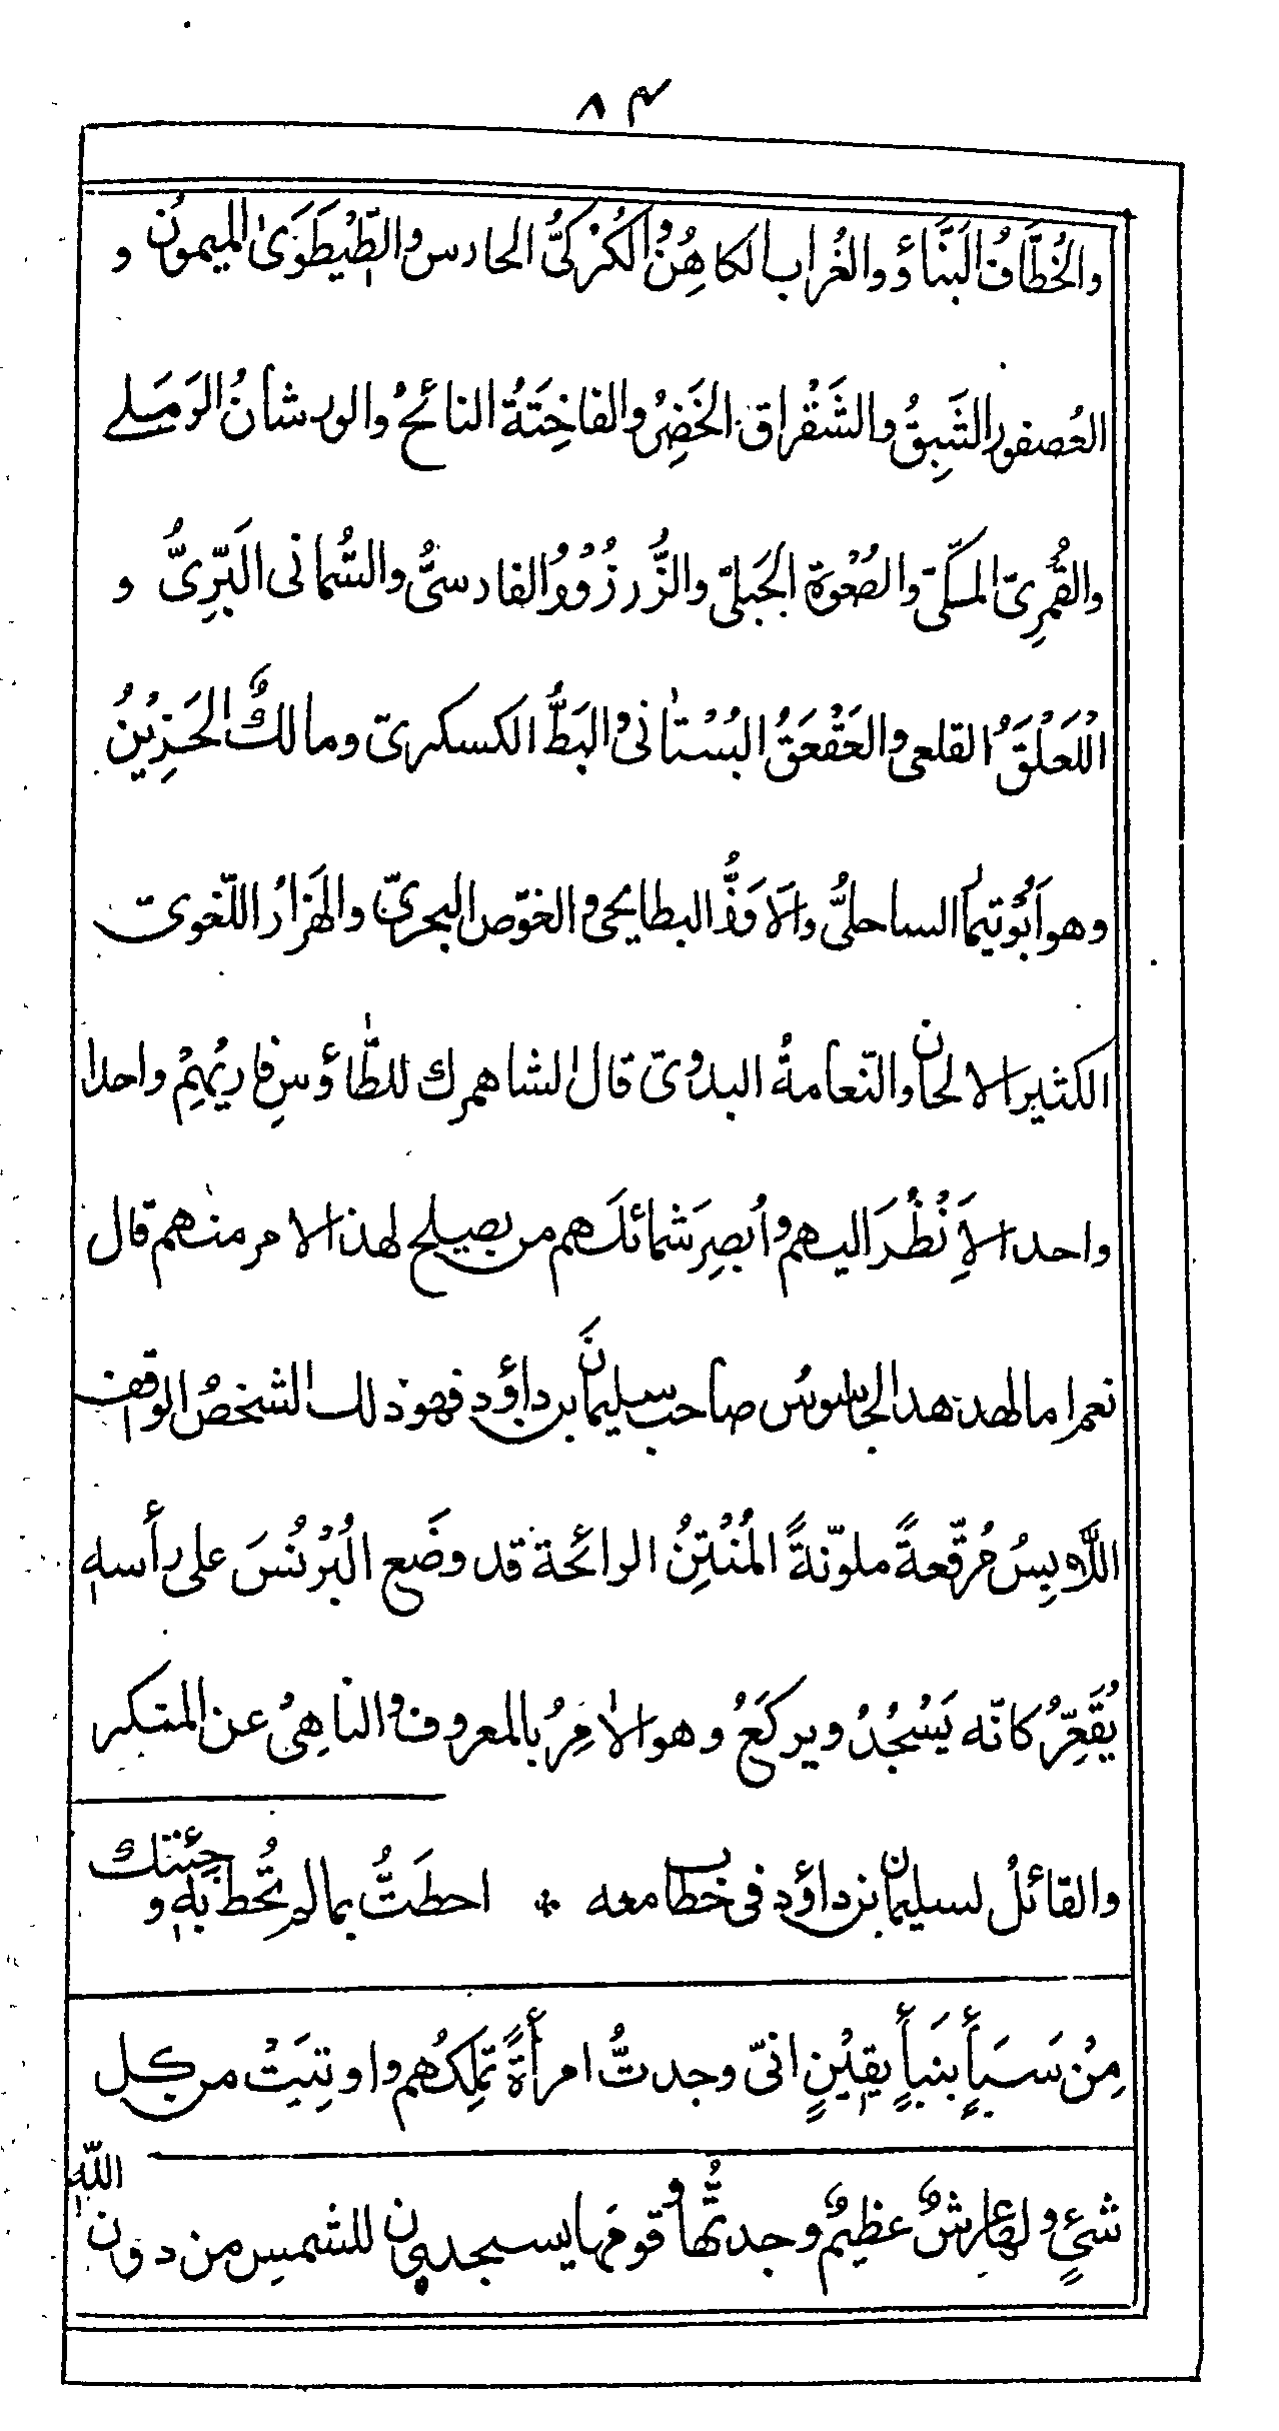 ٨٤
والخُطَّافُ البَنَّاؤ والغُراب الكاهِنُ والكُرْكىُّ الحارس والطِّيْطَوَىٰ الميمونُ و
العُصفور الشَبِقُ والشَقْراق الخَضِرُ والفاخِتَةُ النائحُ والورشانُ الرَمَلے
والقُمرِىّ المكىّ والصُعْوَة الجَبلىّ والزُّرزُوْرُ الفارسىُّ والسُّمانى البَرِّىُّ و
اللْعَلْقَُ القلعى والعَقْعَقُ البُسْتانىُ والبَطُّ الكسكرىّ ومالكٌ الحَزِيْنُ
وهو اَبُو تيمار الساحلىُّ والاَوَذُّ البطايحى والغوّص البحرىّ والهَزارُ اللّغوىّ
الكثير الالحان والنّعامةُ البدوىّ قال الشاهمرك للطّاؤسِ فاريُهِمْ واحدا
واحدا لاَِنْظُرَ اليهم واُبصِرَ شمائلَهم من يصلح لهذا الامر منهم قال
نعم اما الهدهد الجاسوسُ صاحب سليمانَ بن داؤد فهو ذلك الشخصُ الواقف
اللّابِسُ مُرقّعةً ملوّنةً المُنْتِنُ الرائحة قد وضَع البُرْنُسَ على رأسهٖ
يُقَعِّرُ كانّه يَسْجُدُ ويركَعُ وهو الاٰمِرُ بالمعروف والناهِىُ عن المنكر
والقائلُ لسليمان بن داؤد فى خطاب معه * احطَتُّ بمالم تُحط بهٖ وجئتك
مِنْ سَبَأٍ بنَبأٍ يقِيْنٍ انىّ وجدتُّ امرأةً تملِكُهم واوتِيَتْ من كل
شئٍ ولها عرشٌ عظيمٌ وجدتُّها وقومَها يسجدون للشمسِ من دون اللهِ